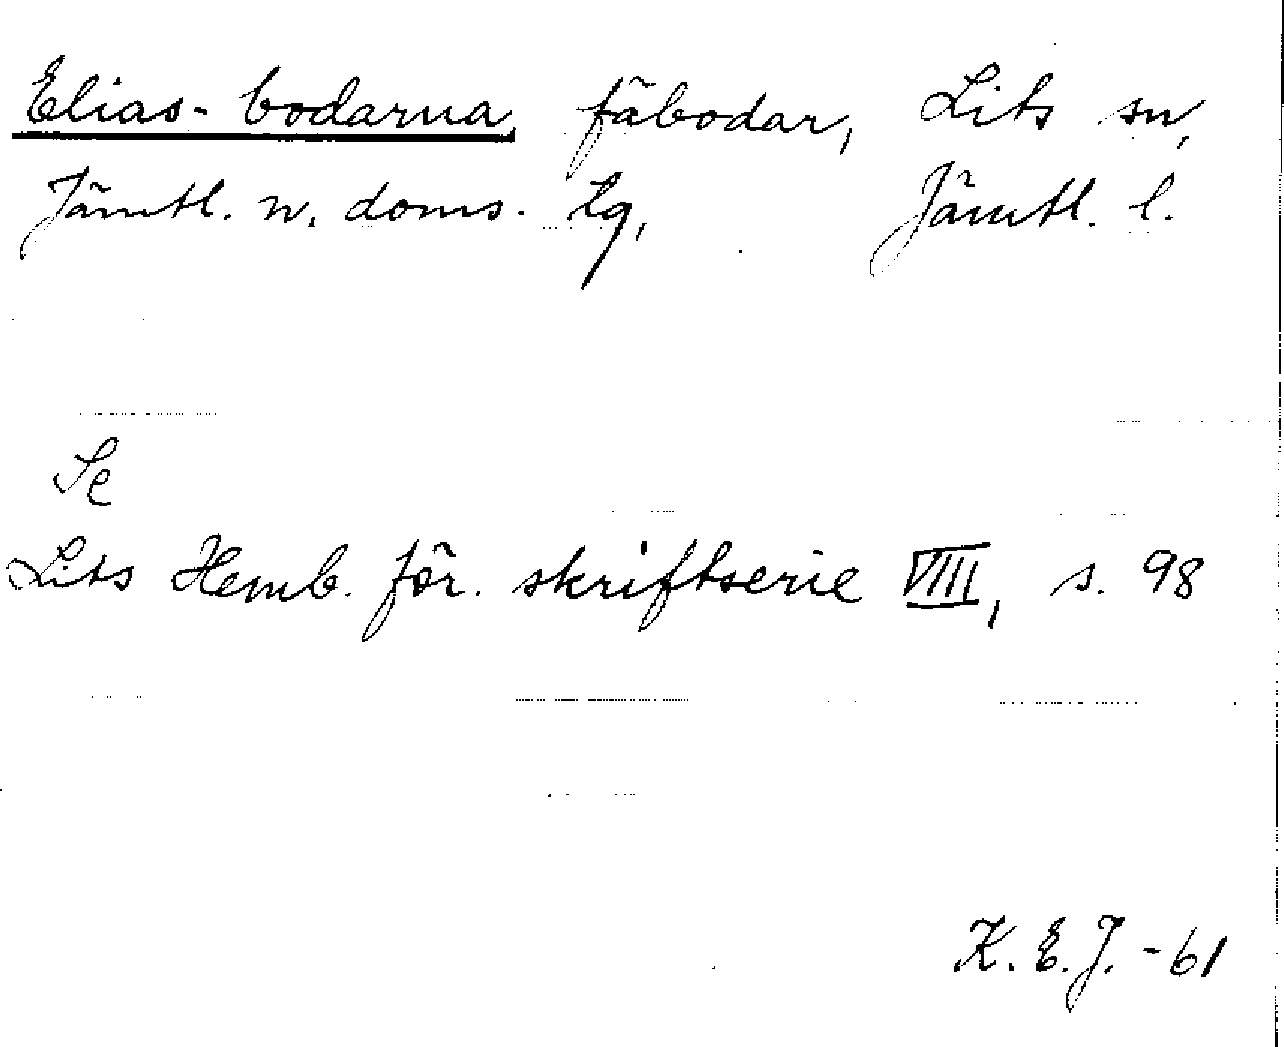 Elias-bodarna, fäbodar, Lits sn,
Jämtl. n. doms. tg, Jämtl. l.
Se
Lits Hemb. för. skriftserie VIII, s. 98
K. E. J. -61